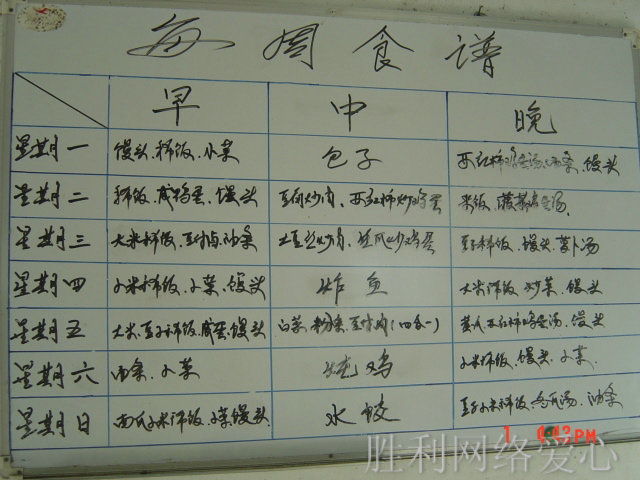 每周食谱
早 中 晚
星期一 馒头、稀饭、小菜 包子 西红柿鸡蛋汤、油条、馒头
星期二 稀饭、咸鸡蛋、馒头 豆角炒肉、西红柿炒鸡蛋 米饭、菠菜鸡蛋汤
星期三 大米稀饭、豆腐卤、油条 土豆丝炒肉、丝瓜炒鸡蛋 豆子稀饭、馒头、萝卜汤
星期四 小米稀饭、小菜、馒头 炸鱼 大米稀饭、炒菜、馒头
星期五 大米豆子稀饭、咸蛋、馒头 白菜、粉条、豆腐、肉(四合一) 黄瓜、西红柿鸡蛋汤、馒头
星期六 油条、小菜 炖鸡 小米稀饭、馒头、小菜
星期日 南瓜小米稀饭、小菜、馒头 水饺 豆子小米稀饭、冬瓜汤、油条
PM
胜利网络爱心